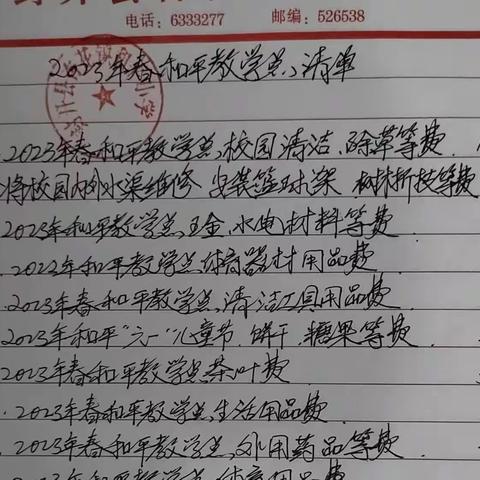 电话：6333277 邮编：526538
2023年春和平教学点清单
2023年春和平教学点校园清洁、除草等费
将校园内外水渠维修 安装篮球架 树木折枝等费
2023年和平教学点五金、水电材料等费
2023年和平教学点体育器材用品费
2023年春和平教学点清洁工具用品费
2023年和平“六一”儿童节、饼干、糖果等费
2023年春和平教学点茶叶费
2023年春和平教学点生活用品费
2023年春和平教学点外用药品等费